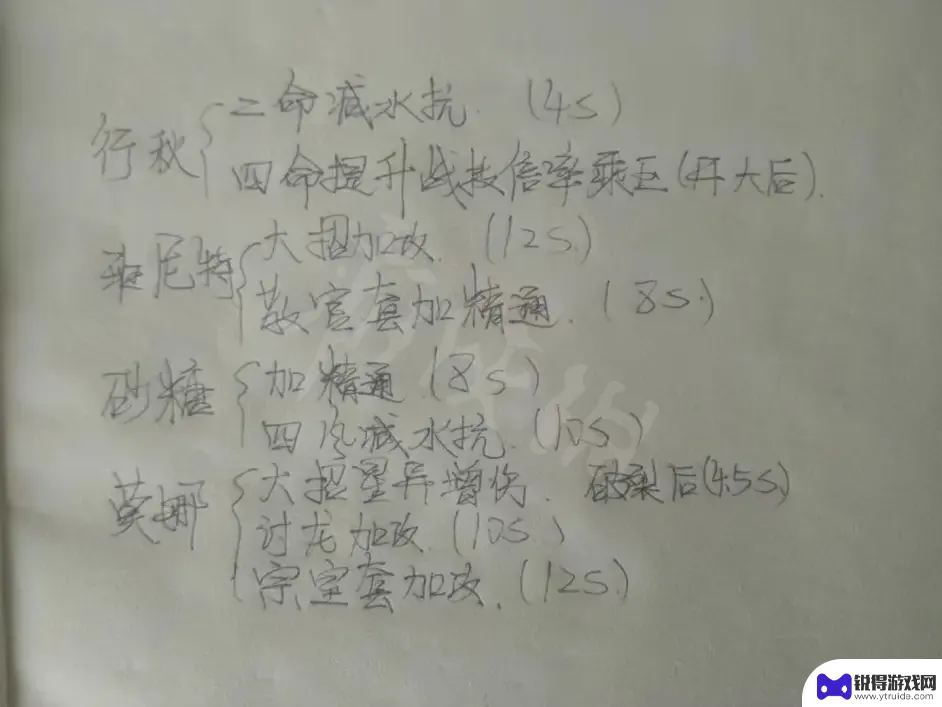 行秋
二命减水抗. (4s)
四命提升战技倍率乘区(开大后).
班尼特
大招加攻. (12s.)
教官套加精通. (8s.)
砂糖
加精通 (8s)
四风减水抗. (10s)
莫娜
大招星异增伤. 破裂后(4.5s.)
讨龙加攻. (10s.)
宗室套加攻. (12s.)
锐得游戏网
www.ytruide.com